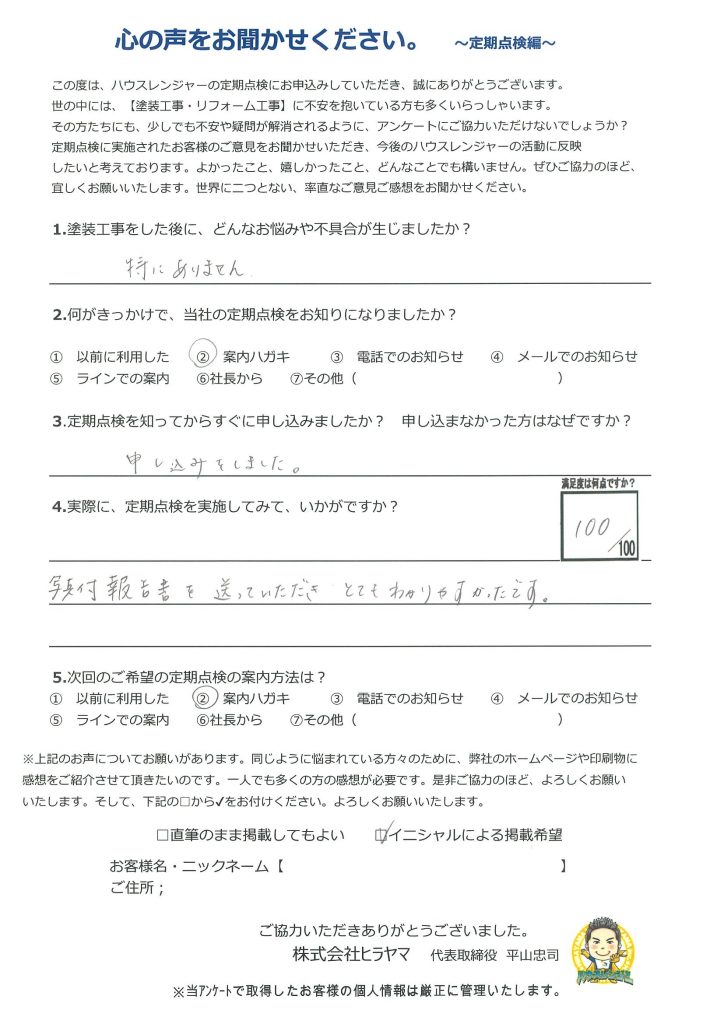 心の声をお聞かせください。 ～定期点検編～
この度は、ハウスレンジャーの定期点検にお申込みしていただき、誠にありがとうございます。
世の中には、【塗装工事・リフォーム工事】に不安を抱いている方も多くいらっしゃいます。
その方たちにも、少しでも不安や疑問が解消されるように、アンケートにご協力いただけないでしょうか？
定期点検に実施されたお客様のご意見をお聞かせいただき、今後のハウスレンジャーの活動に反映
したいと考えております。よかったこと、嬉しかったこと、どんなことでも構いません。ぜひご協力のほど、
宜しくお願いいたします。世界に二つとない、率直なご意見ご感想をお聞かせください。
1.塗装工事をした後に、どんなお悩みや不具合が生じましたか？
特にありません
2.何がきっかけで、当社の定期点検をお知りになりましたか？
① 以前に利用した ② 案内ハガキ ③ 電話でのお知らせ ④ メールでのお知らせ
⑤ ラインでの案内 ⑥社長から ⑦その他（ ）
3.定期点検を知ってからすぐに申し込みましたか？ 申し込まなかった方はなぜですか？
申し込みをしました。
満足度は何点ですか？
4.実際に、定期点検を実施してみて、いかがですか？
100/100
写真付報告書を送っていただき とてもわかりやすかったです。
5.次回のご希望の定期点検の案内方法は？
① 以前に利用した ② 案内ハガキ ③ 電話でのお知らせ ④ メールでのお知らせ
⑤ ラインでの案内 ⑥社長から ⑦その他（ ）
※上記のお声についてお願いがあります。同じように悩まれている方々のために、弊社のホームページや印刷物に
感想をご紹介させて頂きたいのです。一人でも多くの方の感想が必要です。是非ご協力のほど、よろしくお願い
いたします。そして、下記の□から✓をお付けください。よろしくお願いいたします。
□直筆のまま掲載してもよい ☑イニシャルによる掲載希望
お客様名・ニックネーム【 】
ご住所；
ご協力いただきありがとうございました。
株式会社ヒラヤマ 代表取締役 平山忠司
※当ｱﾝｹｰﾄで取得したお客様の個人情報は厳正に管理いたします。